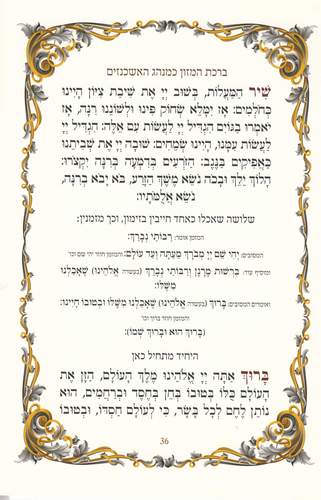 ברכת המזון כמנהג האשכנזים
שִׁיר הַמַּעֲלוֹת, בְּשׁוּב יְיָ אֶת שִׁיבַת צִיּוֹן הָיִינוּ
כְּחֹלְמִים: אָז יִמָּלֵא שְׂחוֹק פִּינוּ וּלְשׁוֹנֵנוּ רִנָּה, אָז
יֹאמְרוּ בַגּוֹיִם הִגְדִּיל יְיָ לַעֲשׂוֹת עִם אֵלֶּה: הִגְדִּיל יְיָ
לַעֲשׂוֹת עִמָּנוּ, הָיִינוּ שְׂמֵחִים: שׁוּבָה יְיָ אֶת שְׁבִיתֵנוּ
כַּאֲפִיקִים בַּנֶּגֶב: הַזֹּרְעִים בְּדִמְעָה בְּרִנָּה יִקְצֹרוּ:
הָלוֹךְ יֵלֵךְ וּבָכֹה נֹשֵׂא מֶשֶׁךְ הַזָּרַע, בֹּא יָבֹא בְרִנָּה,
נֹשֵׂא אֲלֻמֹּתָיו:
שלושה שאכלו כאחד חייבין בזימון, וכך מזמנין:
המזמן אומר: רַבּוֹתַי נְבָרֵךְ:
המסובים: יְהִי שֵׁם יְיָ מְבֹרָךְ מֵעַתָּה וְעַד עוֹלָם: והמזמן חוזר יהי שם וכו'
ומוסיף עוד: בִּרְשׁוּת מָרָנָן וְרַבּוֹתַי נְבָרֵךְ (בעשרה אֱלֹהֵינוּ) שֶׁאָכַלְנוּ
מִשֶּׁלּוֹ:
ואומרים המסובים: בָּרוּךְ (בעשרה אֱלֹהֵינוּ) שֶׁאָכַלְנוּ מִשֶּׁלּוֹ וּבְטוּבוֹ חָיִינוּ:
והמזמן חוזר ברוך וכו'
(בָּרוּךְ הוּא וּבָרוּךְ שְׁמוֹ):
היחיד מתחיל כאן
בָּרוּךְ אַתָּה יְיָ אֱלֹהֵינוּ מֶלֶךְ הָעוֹלָם, הַזָּן אֶת
הָעוֹלָם כֻּלּוֹ בְּטוּבוֹ בְּחֵן בְּחֶסֶד וּבְרַחֲמִים, הוּא
נוֹתֵן לֶחֶם לְכָל בָּשָׂר, כִּי לְעוֹלָם חַסְדּוֹ, וּבְטוּבוֹ
36